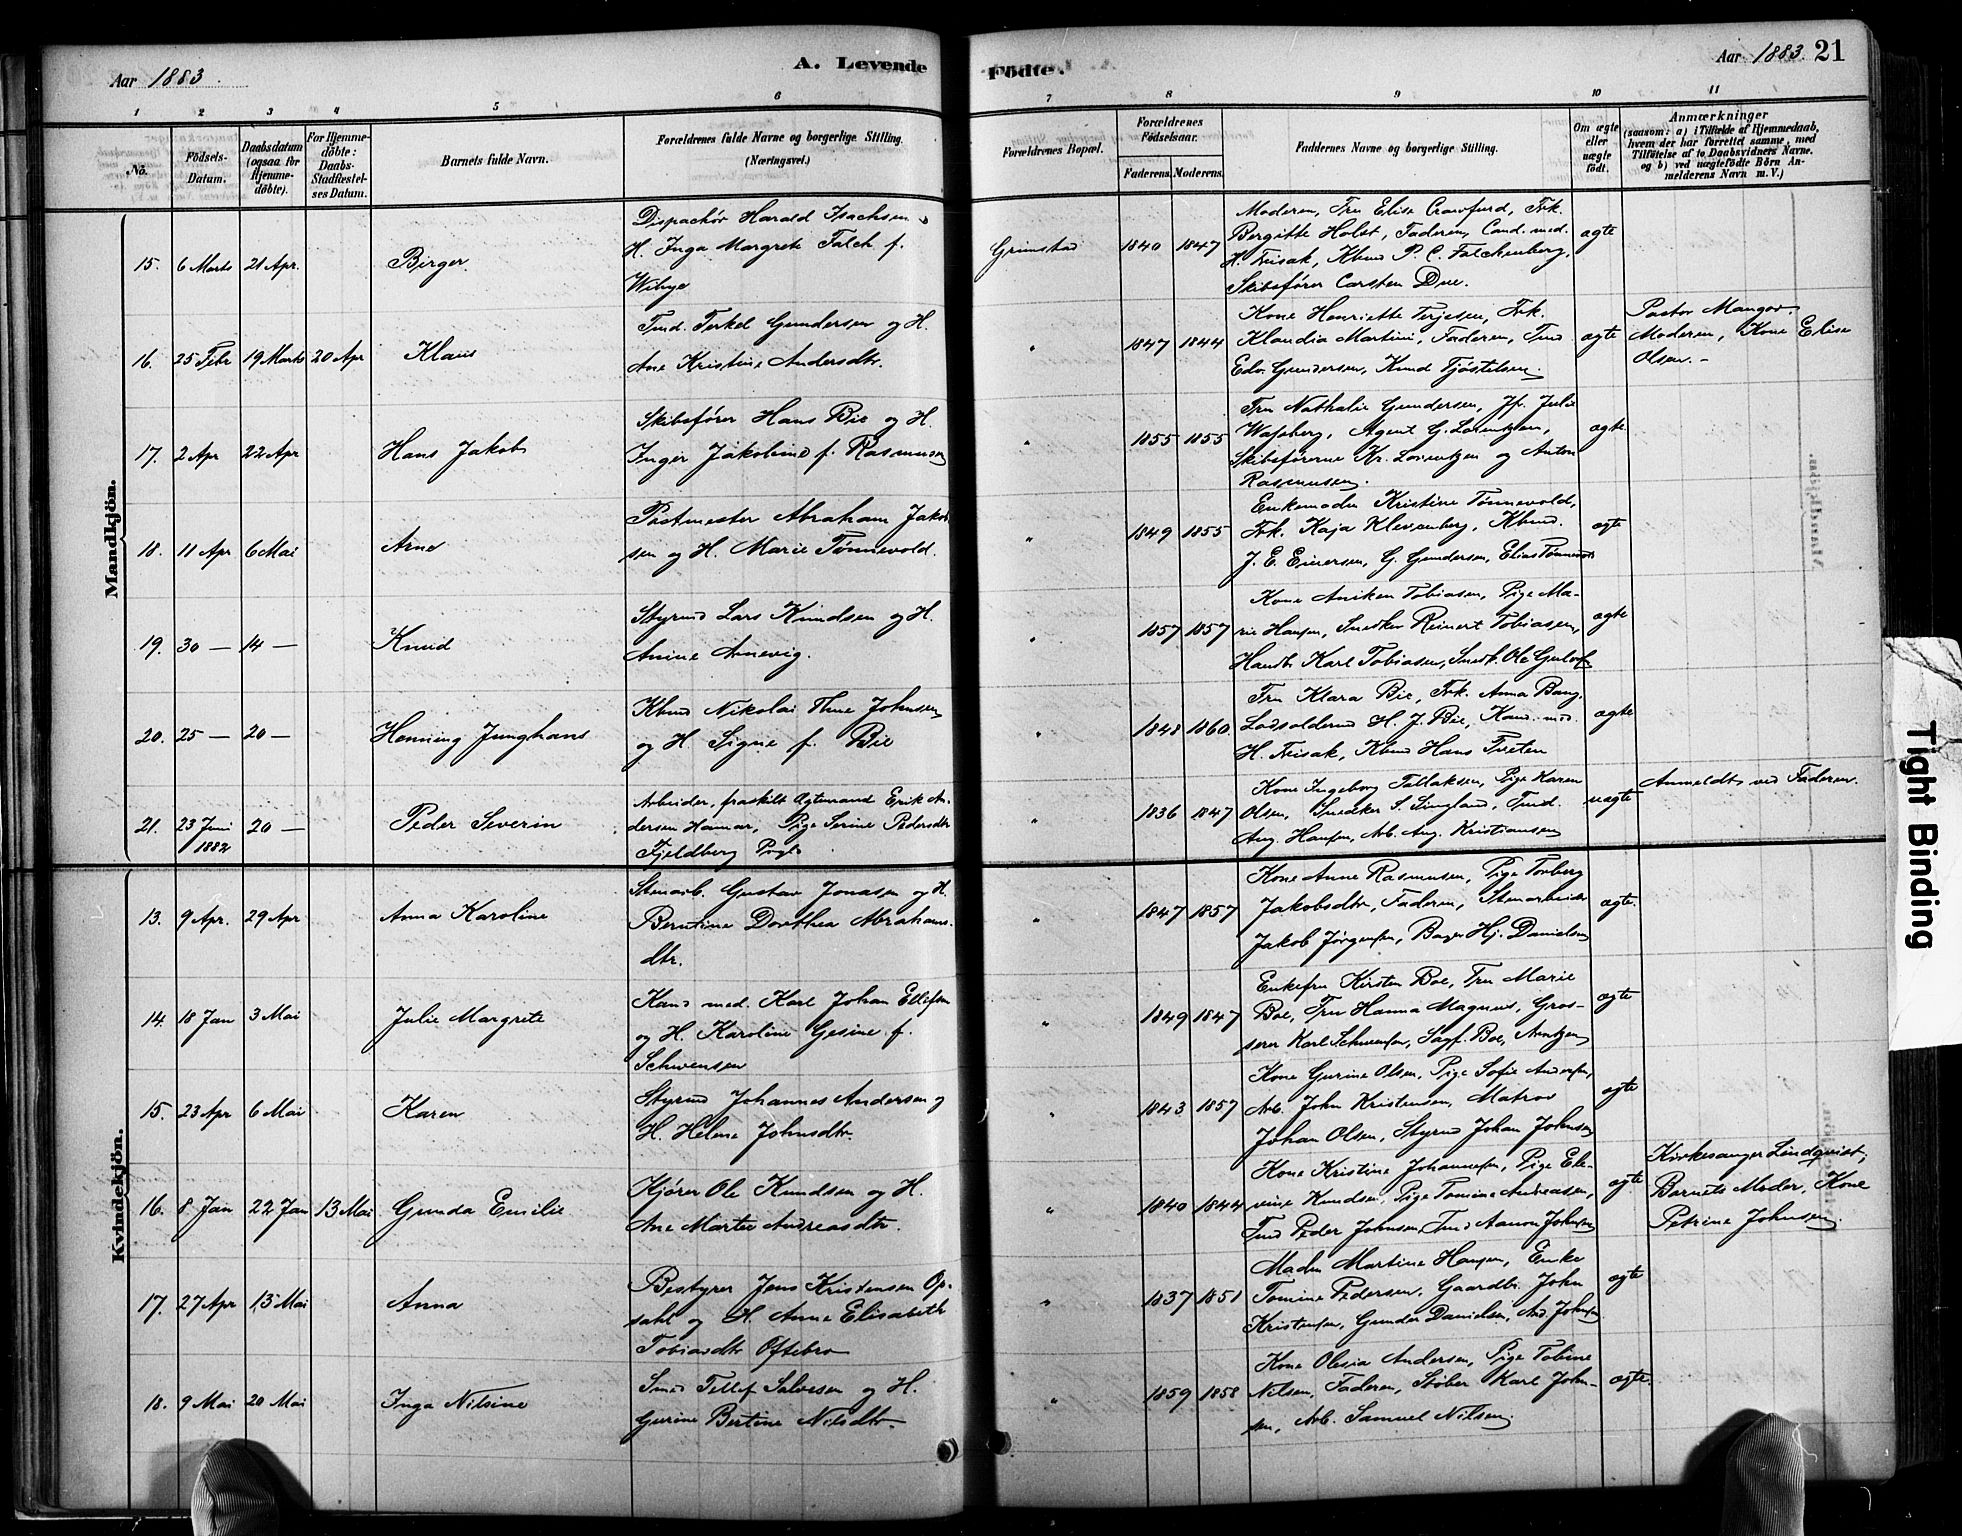 Aar 1883.
A. Levende
Födte.
Aar 1883. 21
1 2 3 4 5 6 7 8 9 10 11
No.
Födsels-Datum.
Daabsdatum (ogsaa for Hjemmedöbte).
For Hjemmedöbte: Daabs-Stadfæstelses Datum.
Barnets fulde Navn.
Forældrenes fulde Navne og borgerlige Stilling. (Næringsvei.)
Forældrenes Bopæl.
Forældrenes Födselsaar.
Faderens. Moderens.
Faddernes Navne og borgerlige Stilling.
Om ægte eller uægte födt.
Anmærkninger
(saasom: a) i Tilfælde af Hjemmedaab, hvem der har forrettet samme, med Tilföielse af to Daabsvidners Navne. og b) ved uægtefödte Börn Anmelderens Navn m. V.)
Mandkjön.
15. 6 Marts 21 Apr. Birger
Dispachör Harald Isachsen
H. Inga Margrete Falch f.
Wibye
Grimstad 1840 1847
Moderen, Fru Elise Crawfurd, Frk.
Bergitte Holst, Faderen, Cand. med.
H. Frisak, Kbmd P. C. Falckenberg,
Skibsfører Carsten Due.
ægte
16. 25 Febr 19 Marts 20 Apr Klaus
Tmd. Terkel Gundersen og H.
Ane Kristine Andersdtr.
" 1847 1844
Kone Henriette Terjesen, Frk.
Klaudia Martini, Faderen, Tmd
Edv. Gundersen, Knud Tjøstelsen.
ægte
Pastor Mangor.
Moderen, Kone Elise
Olsen. -
17. 2 Apr 22 Apr Hans Jakob
Skibsfører Hans Bie og H.
Inger Jakobine f. Rasmusen
" 1855 1855
Fru Nathalie Gundersen, Jf. Julie
Wassberg, Agent G. Lorentzen,
Skibsførerne Kr. Lorentzen og Anton
Rasmusen.
ægte
18. 11 Apr 6 Mai Arne
Postmester Abraham Jakob
sen og H. Marie Tønnevold.
" 1849 1855
Enkemadm Kristine Tønnevold,
Frk. Kaja Klevenberg, Kbmd.
J. E. Evensen, G. Gundersen, Elias Tønnevold
ægte
19. 30 — 14 — Knud
Styrmd Lars Knudsen og H.
Anine Arnevig.
" 1857 1857
Kone Aniken Tobiasen, Pige Ma-
rie Hansen, Snedker Reinert Tobiasen,
Handb. Karl Tobiasen, Snedk. Ole
ægte
20. 25 — 20 — Henning Junghans
Kbmd Nikolai Thue Johnsen
og H. Signe f. Bie
" 1848 1860
Fru Klara Bie, Frk. Anna Bang,
Lodsoldermd H. J. Bie, Kand. med.
H. Frisak, Kbmd Hans Tveten
ægte
21. 23 Juni 1882 20 — Peder Severin
Arbeider, fraskilt Ægtemand Erik An-
dersen Hamar, Pige Serine Pedersdtr
Fjeldberg
" 1836 1847
Kone Ingeborg Tallaksen, Pige Karen
Olsen, Snedker S. Lingland, Tmd.
Aug. Hansen, Arb. Aug. Kristiansen
uægte
Anmeldt ved Faderen.
Kvindekjön.
13. 9 Apr. 29 Apr Anna Karoline
Stenarb. Gustav Jonasen og H.
Berntine Dorothea Abrahams-
dtr.
" 1847 1857
Kone Anne Rasmusen, Pige Torberg
Jakobsdtr, Faderen, Stenarbeider
Jakob Jørgensen, Bager Hj. Danielsen
ægte
14. 18 Jan 3 Mai Julie Margrete
Kand med. Karl Johan Ellefsen
og H. Karoline Gesine f.
Schwensen
" 1849 1847
Enkefru Kirsten Boe, Fru Marie
Boe, Fru Hanna Magnus, Gros-
serer Karl Schwensen, Sagf. Boe, Arntzen
ægte
15. 23 Apr 6 Mai Karen
Styrmd Johannes Andersen og
H. Helene Johnsdtr.
" 1843 1857
Kone Gurine Olsen, Pige Sofie Andersen,
Arb. John Kristensen, Matros
Johan Olsen, Styrmd Johan Johnsen
ægte
16. 8 Jan 22 Jan 13 Mai Gunda Emilie
Kjører Ole Knudsen og H.
Ane Marte Andreasdtr.
" 1840 1844
Kone Kristine Johannesen, Pige Ele-
vine Knudsen, Pige Tomine Andreasen,
Tmd Peder Johnsen, Tmd Aanon Johnsen
ægte
Kirkesanger Lindqvist,
Barnets Moder, Kone
Petrine Johnsen.
17. 27 Apr 13 Mai Anna
Bestyrer Jens Kristensen Op-
sahl og H. Anne Elisabeth
Tobiasdtr Oftebro
" 1837 1851
Madm Martine Hansen, Enke
Tomine Pedersen, Gaardbr. John
Kristensen, Gunder Danielsen, And Johnsen
ægte
18. 9 Mai 20 Mai Inga Nilsine
Smed Tellef Salvesen og H.
Gurine Bertine Nilsdtr
" 1859 1858
Kone Olesia Andersen, Pige Tobine
Nilsen, Faderen, Støber Karl John-
sen, Arb. Samuel Nilsen.
ægte.
Tight Binding